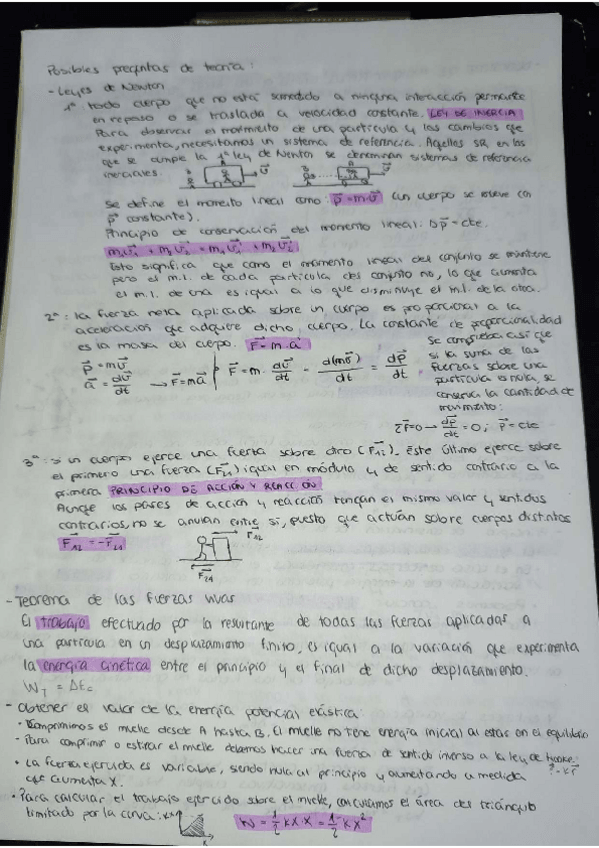 Posibles preguntas de teoría:
- Leyes de Newton
1ª todo cuerpo que no está sometido a ninguna interacción permanece
en reposo o se traslada a velocidad constante. LEY DE INERCIA
Para observar el movimiento de una partícula y los cambios que
experimenta, necesitamos un sistema de referencia. Aquellos SR, en los
que se cumple la 1ª ley de Newton se denominan sistemas de referencia
inerciales.
Se define el momento lineal como: p = m·v (un cuerpo se mueve con
p constante).
Principio de conservación del momento lineal: Δp = cte.
m₁v₁ + m₂v₂ = m₁v₁' + m₂v₂'
Esto significa que como el momento lineal del conjunto se mantiene
pero el m.l. de cada partícula del conjunto no, lo que aumenta
el m.l. de una es igual a lo que disminuye el m.l. de la otra.
2ª: la fuerza neta aplicada sobre un cuerpo es proporcional a la
aceleración que adquiere dicho cuerpo. La constante de proporcionalidad
es la masa del cuerpo. F = m·a
p = mv
a = dv/dt → F = ma
F = m· dv/dt = d(mv)/dt = dp/dt
Se comprueba así que
si la suma de las
fuerzas sobre una
partícula es nula, se
conserva la cantidad de
movimiento:
ΣF=0 → dp/dt = 0; p = cte
3ª: si un cuerpo ejerce una fuerza sobre otro (F₁₂). Este último ejerce sobre
el primero una fuerza (F₂₁) igual en módulo y de sentido contrario a la
primera PRINCIPIO DE ACCIÓN Y REACCIÓN
Aunque los pares de acción y reacción tengan el mismo valor y sentidos
contrarios, no se anulan entre sí, puesto que actúan sobre cuerpos distintos
F₁₂ = -F₂₁
F₁₂
F₂₁
- Teorema de las fuerzas vivas
El trabajo efectuado por la resultante de todas las fuerzas aplicadas a
una partícula en un desplazamiento finito, es igual a la variación que experimenta
la energía cinética entre el principio y el final de dicho desplazamiento.
W_T = ΔEc
- Obtener el valor de la energía potencial elástica:
• Comprimimos el muelle desde A hasta B. El muelle no tiene energía inicial al estar en el equilibrio
- Para comprimir o estirar el muelle debemos hacer una fuerza de sentido inverso a la ley de Hooke.
• La fuerza ejercida es variable, siendo nula al principio y aumentando a medida
que aumenta x.
• Para calcular el trabajo ejercido sobre el muelle, calculamos el área del triángulo
limitado por la curva: kx
x
W = 1/2 kx·x = 1/2 kx²